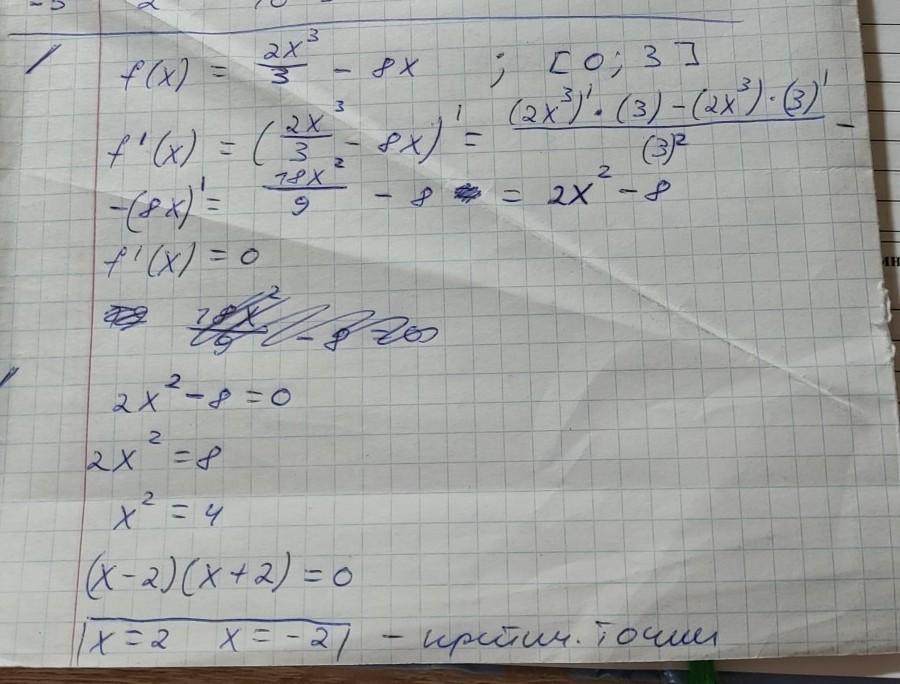 f(x) = 2x³/3 - 8x ; [0; 3]
f'(x) = (2x³/3 - 8x)' = ((2x³)' · (3) - (2x³) · (3)')/(3)² -
-(8x)' = 18x²/9 - 8 = 2x² - 8
f'(x) = 0
2x² - 8 = 0
2x² = 8
x² = 4
(x-2)(x+2) = 0
x = 2 x = -2 - критич. точки